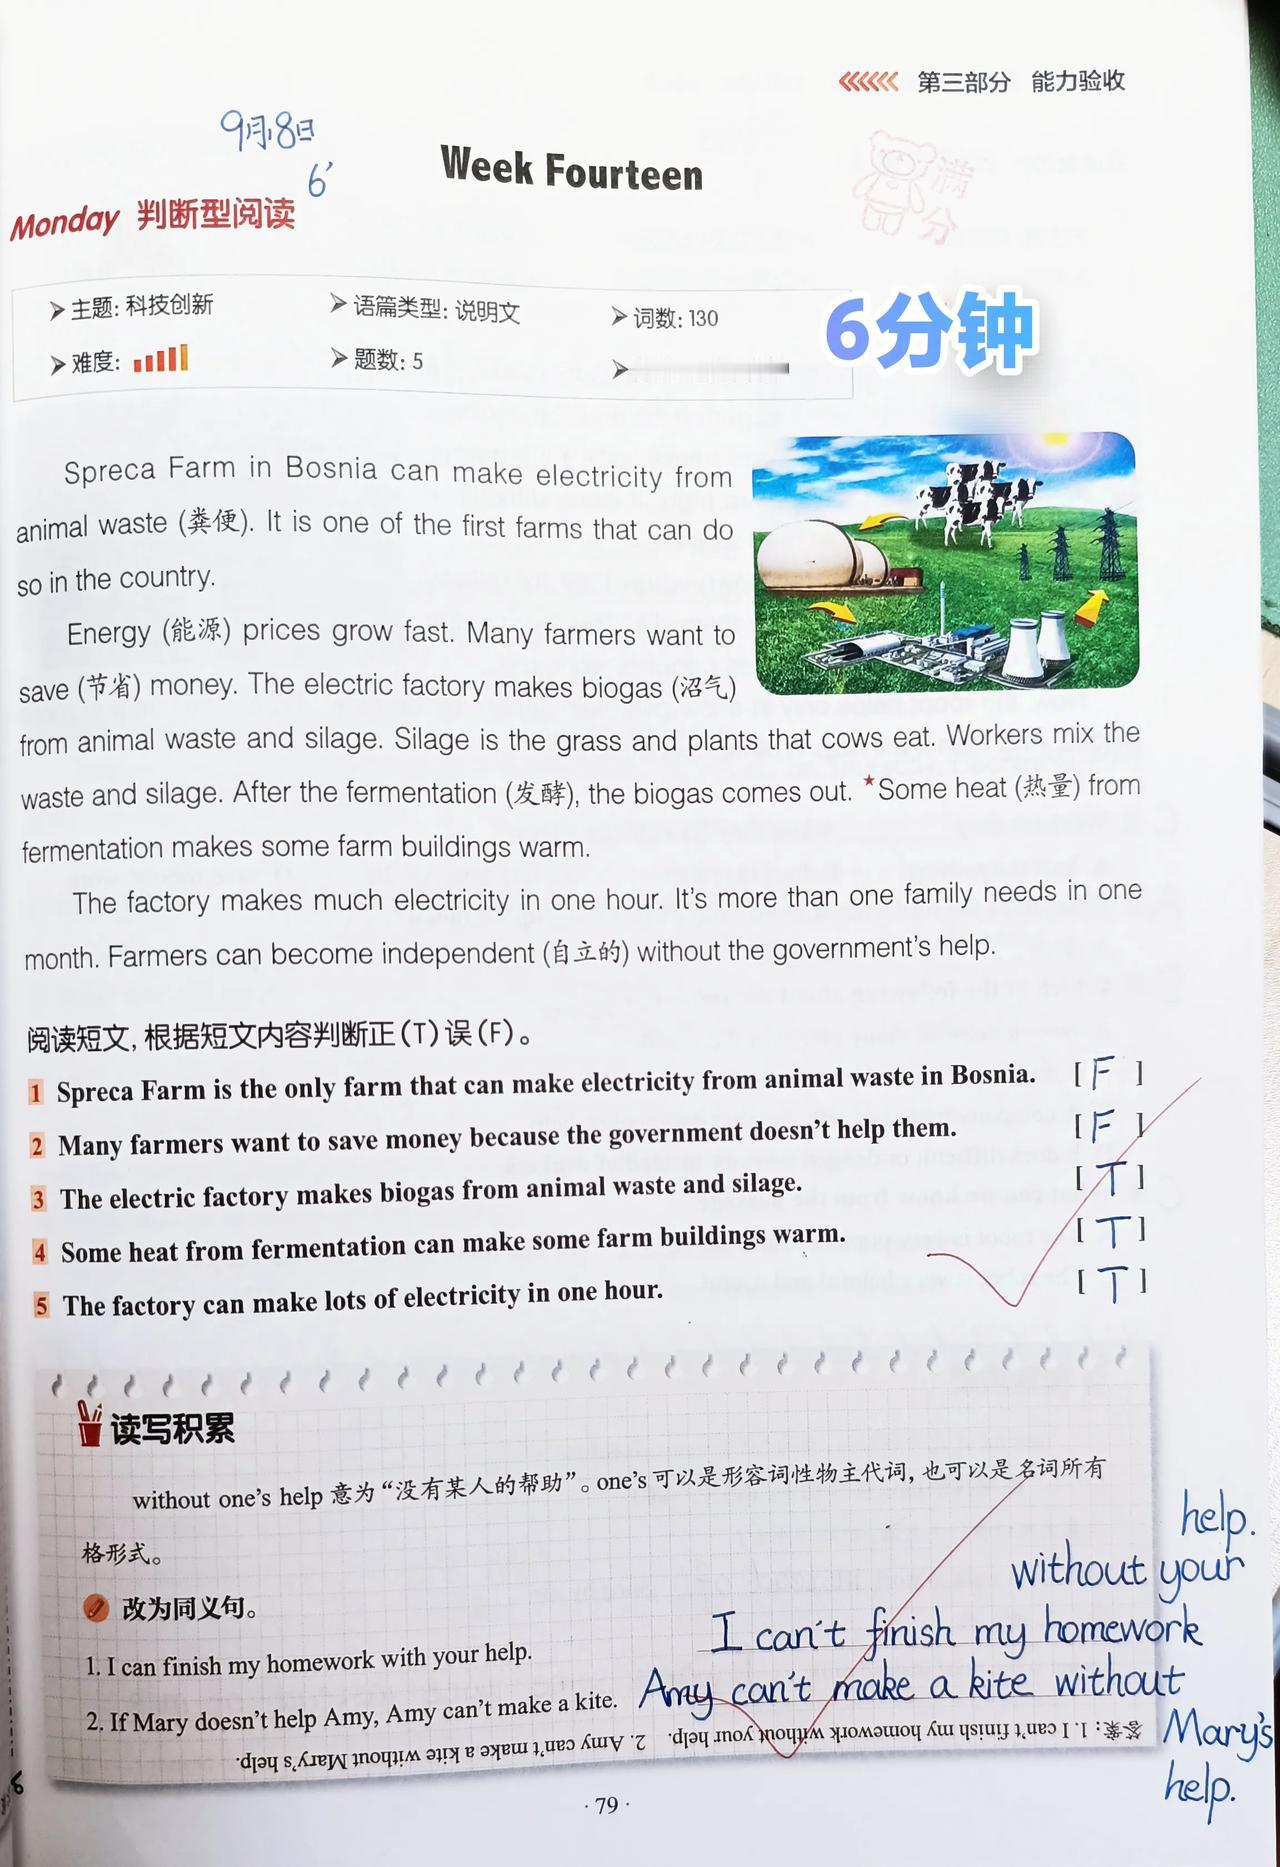 第三部分 能力验收
9月8日
6'
Week Fourteen
满分
Monday 判断型阅读
主题: 科技创新
语篇类型: 说明文
词数: 130
6分钟
难度:
题数: 5
Spreca Farm in Bosnia can make electricity from
animal waste (粪便). It is one of the first farms that can do
so in the country.
Energy (能源) prices grow fast. Many farmers want to
save (节省) money. The electric factory makes biogas (沼气)
from animal waste and silage. Silage is the grass and plants that cows eat. Workers mix the
waste and silage. After the fermentation (发酵), the biogas comes out. ★Some heat (热量) from
fermentation makes some farm buildings warm.
The factory makes much electricity in one hour. It's more than one family needs in one
month. Farmers can become independent (自立的) without the government's help.
阅读短文, 根据短文内容判断正(T)误(F)。
1 Spreca Farm is the only farm that can make electricity from animal waste in Bosnia. [ F ]
2 Many farmers want to save money because the government doesn't help them. [ F ]
3 The electric factory makes biogas from animal waste and silage. [ T ]
4 Some heat from fermentation can make some farm buildings warm. [ T ]
5 The factory can make lots of electricity in one hour. [ T ]
读写积累
without one's help 意为“没有某人的帮助”。one's 可以是形容词性物主代词, 也可以是名词所有
格形式。
改为同义句。
1. I can finish my homework with your help.
I can't finish my homework
without your
help.
2. If Mary doesn't help Amy, Amy can't make a kite.
Amy can't make a kite without
Mary's
help.
答案: 1. I can't finish my homework without your help. 2. Amy can't make a kite without Mary's help.
· 79 ·